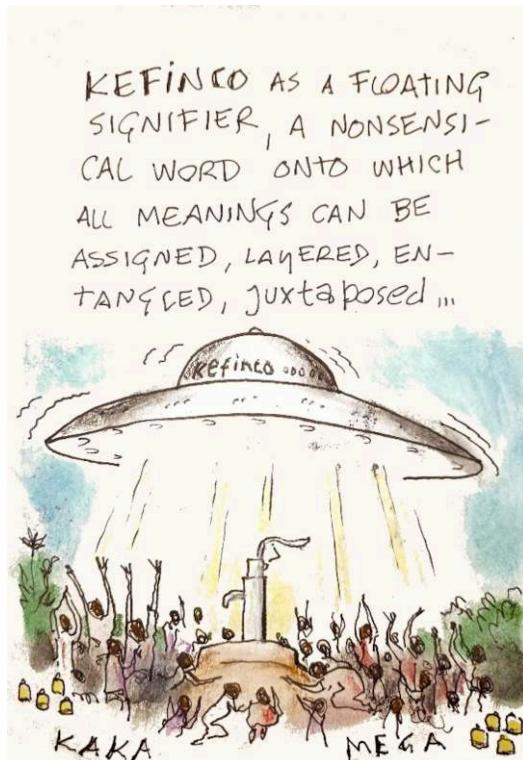 KEFINCO AS A FLOATING
SIGNIFIER, A NONSENSI-
CAL WORD ONTO WHICH
ALL MEANINGS CAN BE
ASSIGNED, LAYERED, EN-
TANGLED, juxtaposed ...
Kefinco
KAKA MEGA